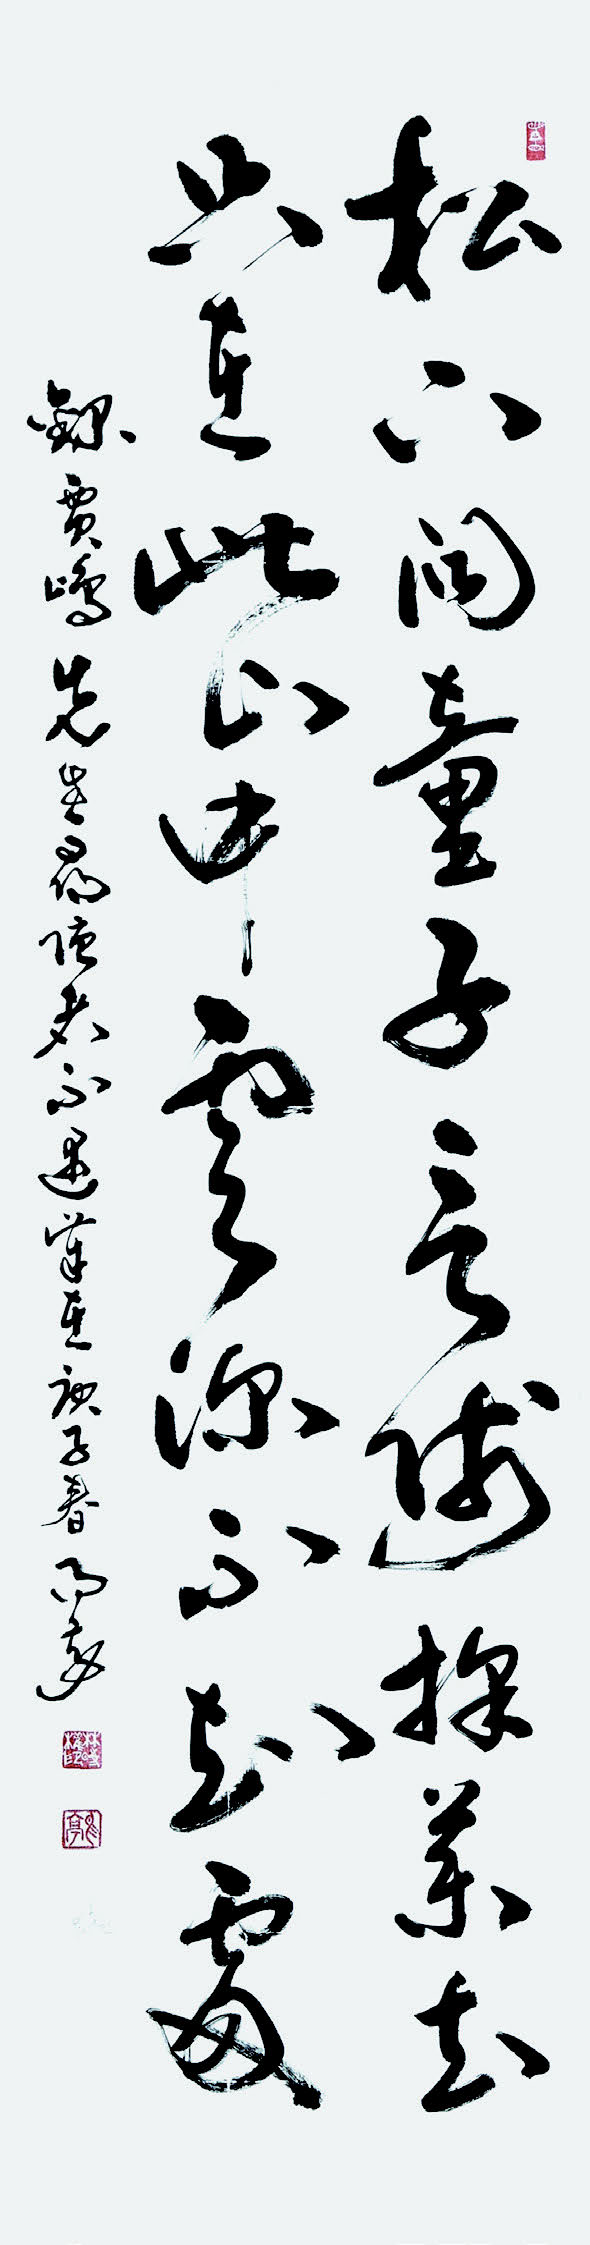 松下問童子言師採藥去
只在此山中雲深不知處
錄賈島先生尋隱者不遇筆在庚子春